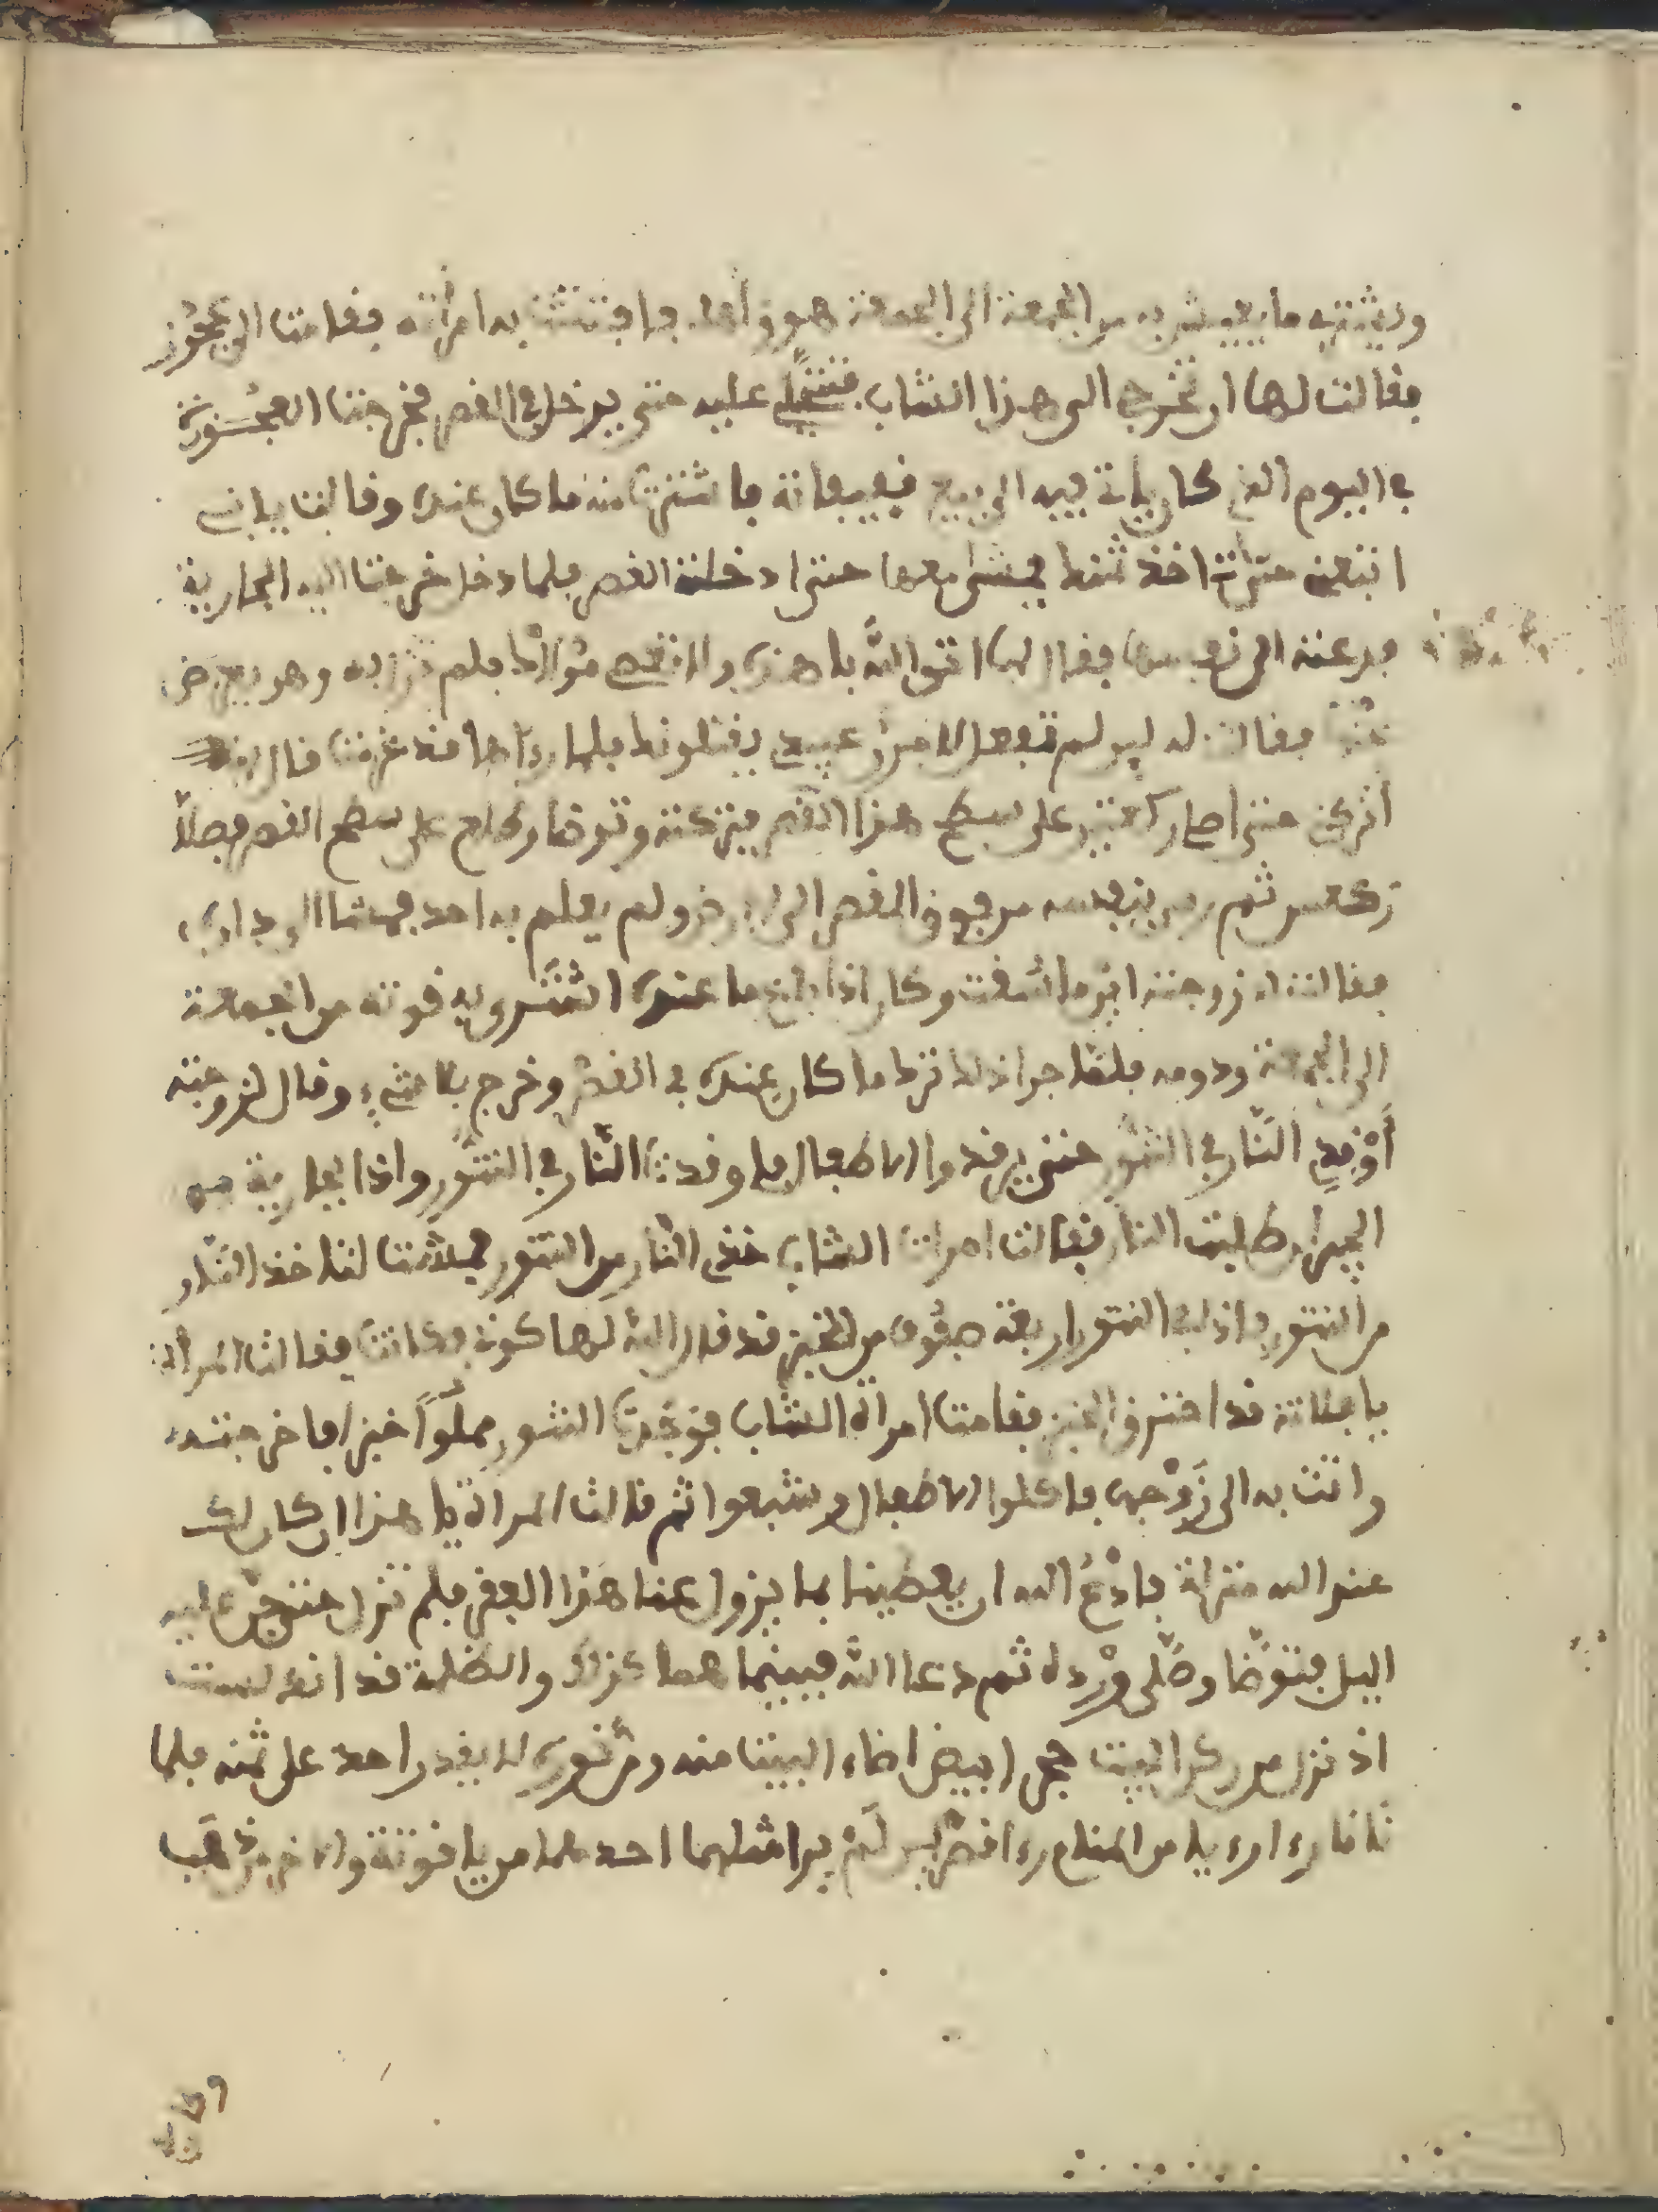 ويشتري ما يعيش به من الجمعة الى الجمعة هو واهله فافتتنت به امرأته فقامت الى عجوز
فقالت لها ان تخرج الى هذا الشاب عليه حتى يدخل في القصر فخرجت العجوزة
في اليوم الذي كان ياتي فيه الى بيع قفيفاته فاشترت منه ما كان عنده وقالت يا بني
اتبعني حتى تاخذ ثمنك فمشى معها حتى ادخلته القصر فلما دخل خرجت اليه الجارية
فدعته الى نفسها فقال لها اتق الله يا هذه ولا تعصي مولاك فلم تزل به وهو يعرض
عنها فقالت له لين لم تفعل لامرن عبيدي يقتلونك فلما رءاها قد عزمت قال
اتركني حتى اصلي ركعتين على سطح هذا القصر فتركته وتوضا وطلع على سطح القصر فصلا
ركعتين ثم رمى بنفسه من فوق القصر الى الارض ولم يعلم به احد فمشا الى داره
فقالت له زوجته اين ما سقت وكان اذا باع ما عنده اشترى به قوته من الجمعة
الى الجمعة ودومه فلما جرا ذلك ترك ما كان عنده في القصر وخرج بلا شيء وقال لزوجته
أوقدي النار في التنور حتى يرقدوا الاطفال فاوقدت النار في التنور واذا بجارية من
الجيران طلبت النار فقالت امرات الشاب خذي النار من التنور فمشت لتاخذ النار
من التنور فاذا في التنور اربعة صفوف من الخبز قد قال الله لها كوني فكانت فقالت المرأة
يا فلانة قد احترق الخبز فقامت امراة الشاب فوجدت التنور مملوا خبزا فاخرجته
واتت به الى زوجها فاكلوا الاطفال وشبعوا ثم قالت المراة يا هذا ان كان لك
عند الله منزلة فادع الله ان يعطينا بما يزول عنا هذا الفقر فلم تزل حتى جن عليه
اليل فتوضا وصلى ورده ثم دعا الله فبينما هما كذلك والظلمة قد
اذ نزل من ركن البيت حجر ابيض اضاء البيت منه ومن نوره لا يقدر احد على ثمنه فلما
ناما رءا رءيا من المنام رءا قصرين لم ير مثلهما احدهما من ياقوتة والاخر من ذهب